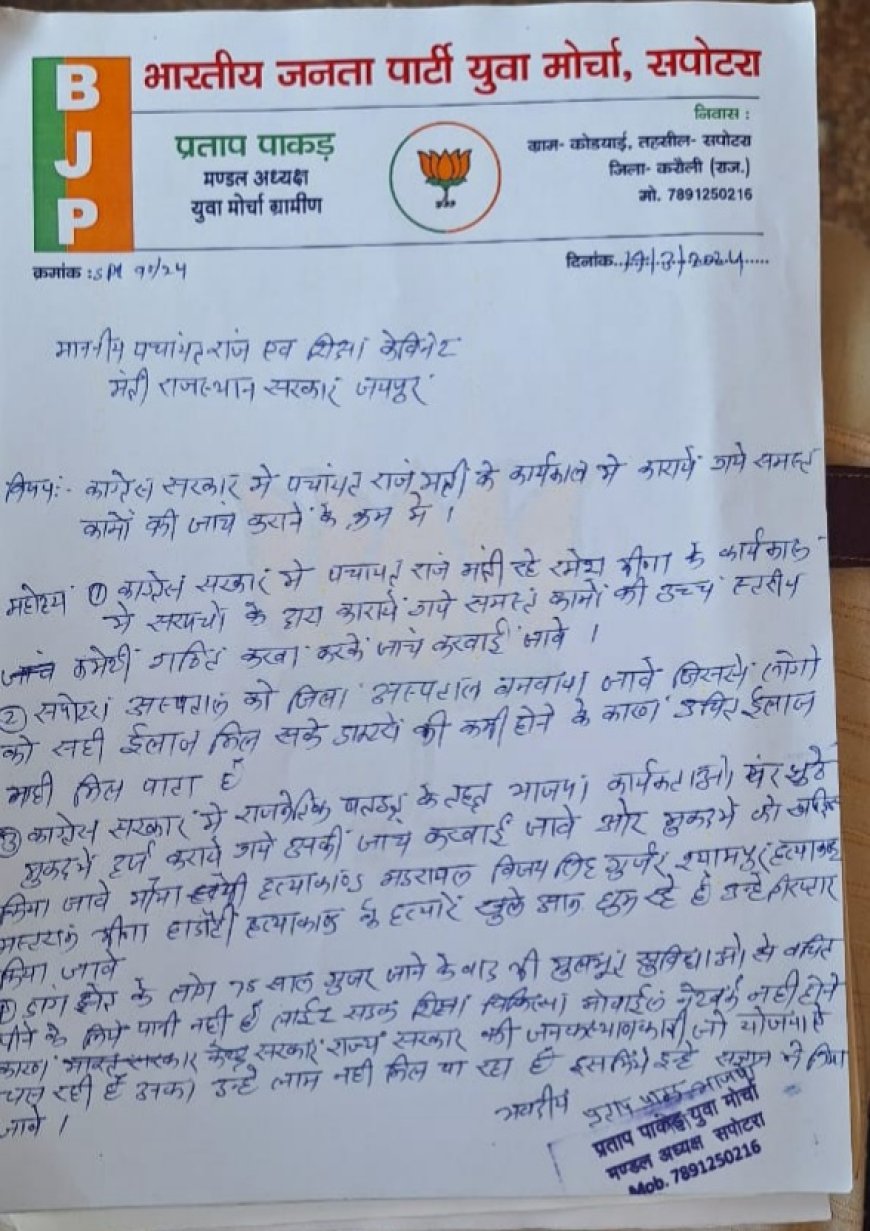 BJP
भारतीय जनता पार्टी युवा मोर्चा, सपोटरा
प्रताप पाकड़
मण्डल अध्यक्ष
युवा मोर्चा ग्रामीण
निवास :
ग्राम- कोडयाई, तहसील- सपोटरा
जिला- करौली (राज.)
मो. 7891250216
क्रमांक :SPM 90/24
दिनांक..
माननीय पचांयत राज एव शिक्षा केविनेट
मंत्री राजस्थान सरकार जयपुर
विषय:- काग्रेस सरकार मे पचांयत राज मंत्री के कार्यकाल मे कारायें गये समस्त
कामों की जाच कराने के क्रम मे ।
महोदय ① काग्रेस सरकार मे पचायत राज मंत्री रहे रमेश मीणा के कार्यकाल
मे सरपचों के द्वारा कारायें गये समस्त कामों की उच्च स्तरीय
कमेटी गठित करवा करके जाच करवाई जावे ।
② सपोटरा अस्पताल को जिला अस्पताल बनवाया जावे जिससे लोगो
को सही ईलाज मिल सके डाक्टरों की कमी होने के कारण उचित ईलाज
नही मिल पाता है
③ काग्रेस सरकार मे राजनैतिक के तहत भाजपा कार्यकर्ताओ पर झुठे
मुकदमें दर्ज कराये गये उसकी जाच करवाई जावे ओर मुकदमे को
किया जावे हत्याकाण्ड विजय सिह गुर्जर श्यामपुर हत्याकाण्ड
मीणा हाडोटी हत्याकाण्ड के हत्यारे खुले आम घुम रहे है उन्हे गिरप्तार
किया जावे
डांग क्षेत्र के लोग 75 साल गुजर जाने के बाद भी मुलभूत सुविधाओ से वचित
पीने के लिये पानी नही है लाईट सडक शिक्षा चिकित्सा मोबाईल नेटवर्क नही होने
कारण भारत सरकार केन्द्र सरकार राज्य सरकार की जनकल्याणकारी जो योजनाऐ
चल रही है उसका उन्हे लाभ नही मिल पा रहा है इसलिये इन्हे किया
जावे ।
भवदीय
प्रताप पाकड़ युवा मोर्चा
मण्डल अध्यक्ष सपोटरा
Mob. 7891250216